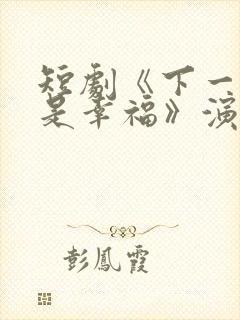 短劇《下一
是幸福》演
彭鳳霞